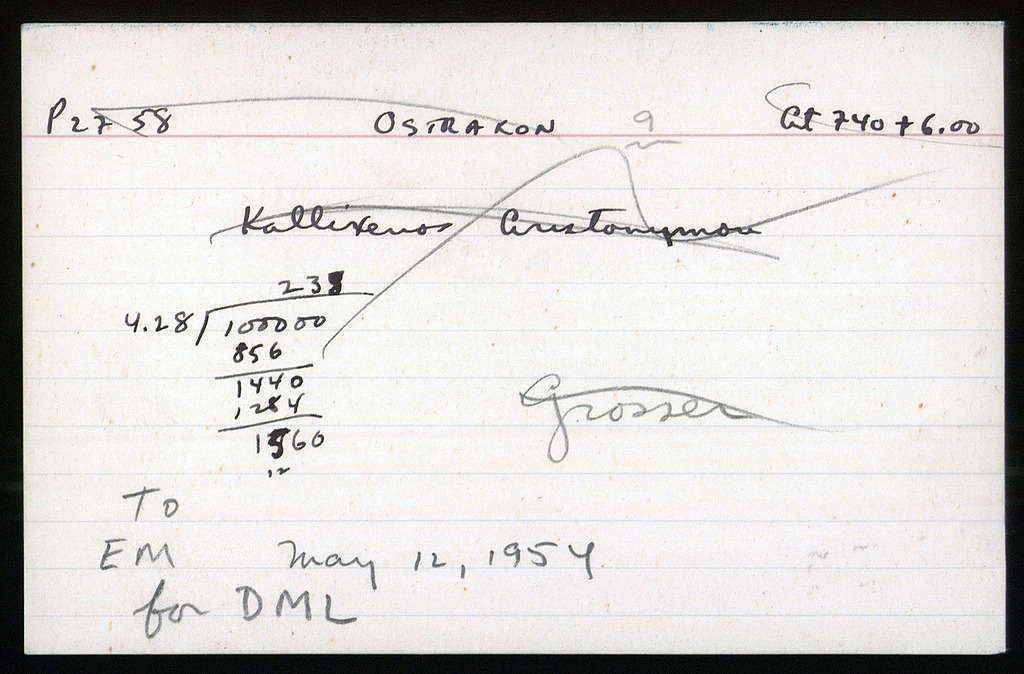 P 27 58 OSTRAKON 9 Cat 740 + 6.00
Kallixenos Aristonymou
238
4.28 100000
856
1440
1284
1560
12
Grosser
To
EM May 12, 1954
for DML